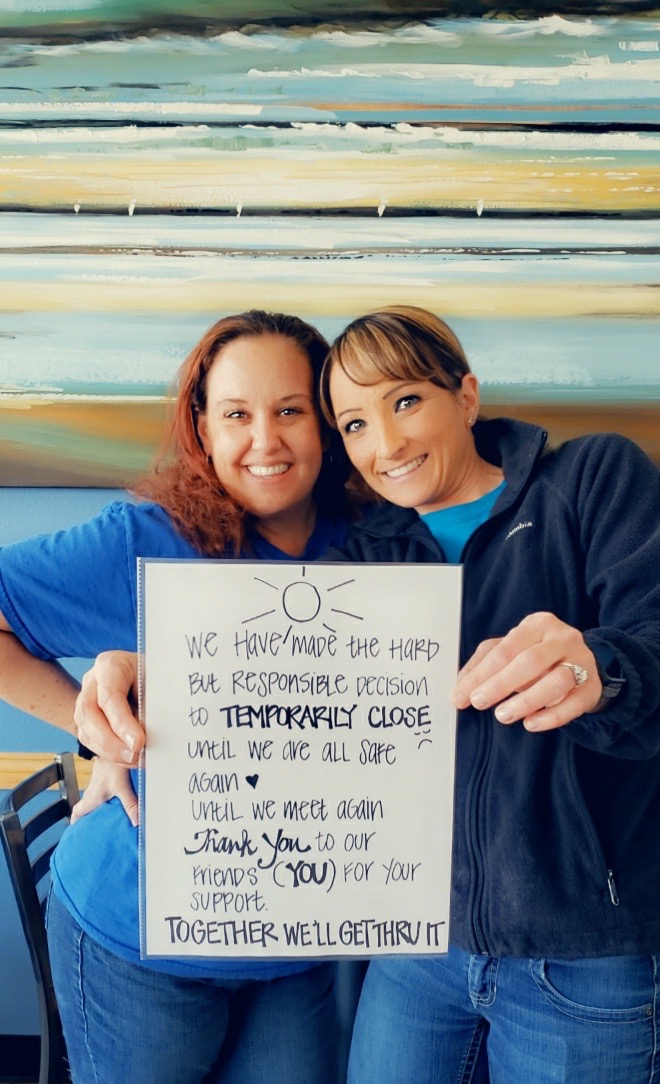 We Have made the Hard
But Responsible Decision
to TEMPORARILY CLOSE
until we are all safe
again ♥
until we meet again
Thank You to our
Friends (YOU) For Your
support.
TOGETHER WE'LL GET THRU IT
Columbia